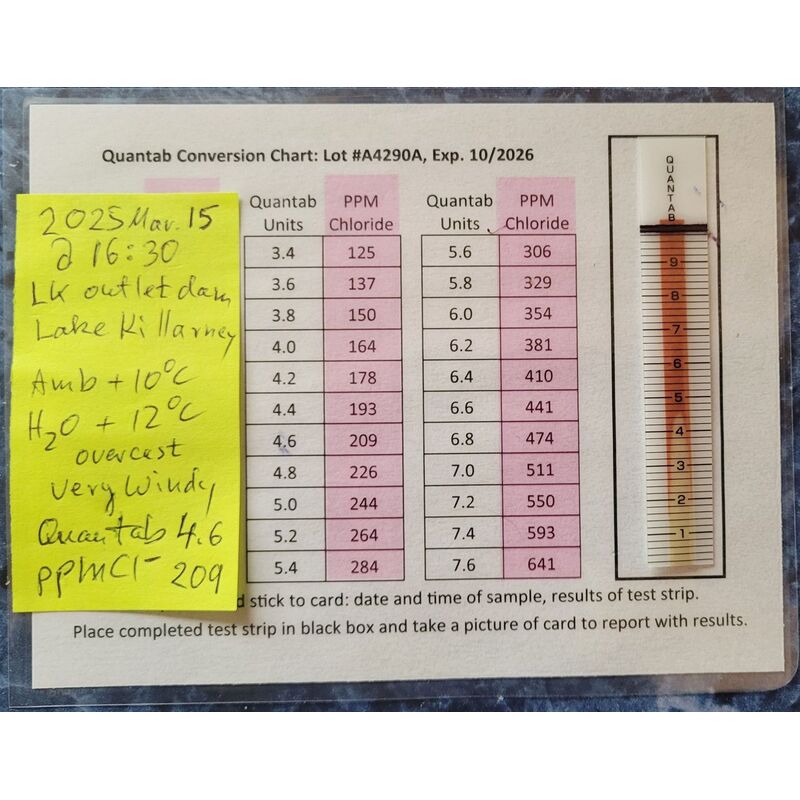 Quantab Conversion Chart: Lot #A4290A, Exp. 10/2026
2025 Mar. 15
@ 16:30
LK outlet dam
Lake Killarney
Amb + 10°C
H2O + 12°C
overcast
very Windy
Quantab 4.6
ppm Cl- 209
Quantab Units PPM Chloride
3.4 125
3.6 137
3.8 150
4.0 164
4.2 178
4.4 193
4.6 209
4.8 226
5.0 244
5.2 264
5.4 284
Quantab Units PPM Chloride
5.6 306
5.8 329
6.0 354
6.2 381
6.4 410
6.6 441
6.8 474
7.0 511
7.2 550
7.4 593
7.6 641
QUANTAB
9
8
7
6
5
4
3
2
1
stick to card: date and time of sample, results of test strip.
Place completed test strip in black box and take a picture of card to report with results.